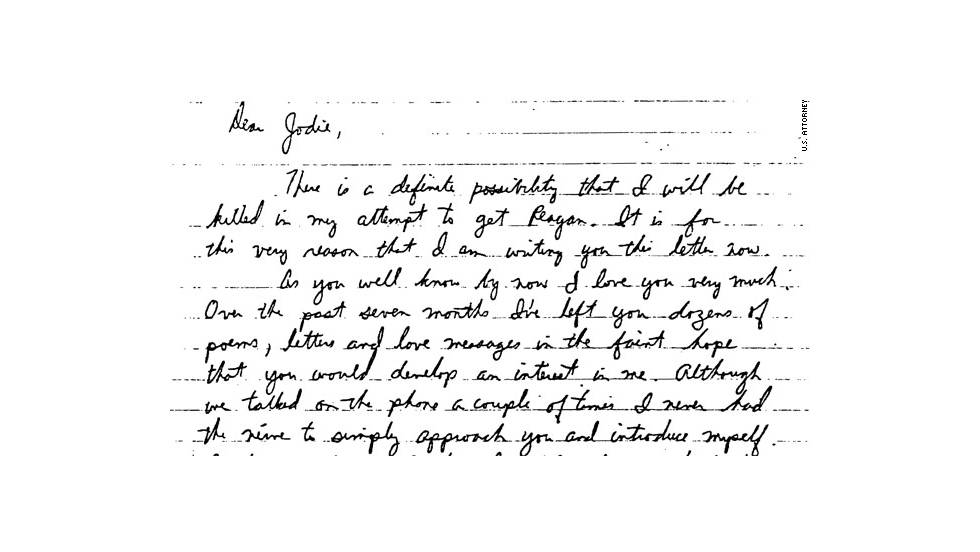 Dear Jodie,
There is a definite possibility that I will be
killed in my attempt to get Reagan. It is for
this very reason that I am writing you this letter now.
As you well know by now I love you very much.
Over the past seven months I've left you dozens of
poems, letters and love messages in the faint hope
that you would develop an interest in me. Although
we talked on the phone a couple of times I never had
the nerve to simply approach you and introduce myself.
U.S. ATTORNEY